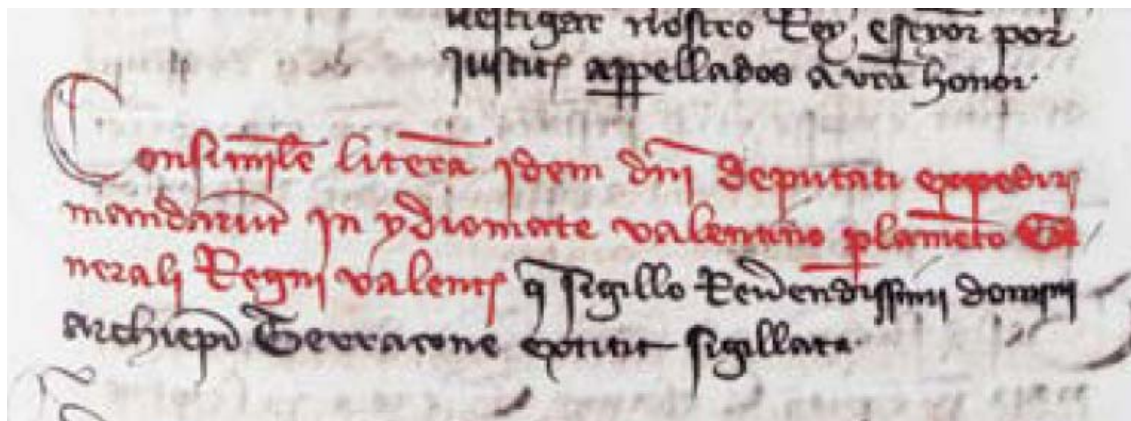 vestigar nostro Rey, e senyor por
justicia appellados a vra honor.
Consimile litera jdem dnj deputati expedirj
mandarut jn ydiomate valentino plameto Ge
neralj Regnj valentj q sigillo Reverendissimj dominj
archiepi Terracone extitit sigillata.